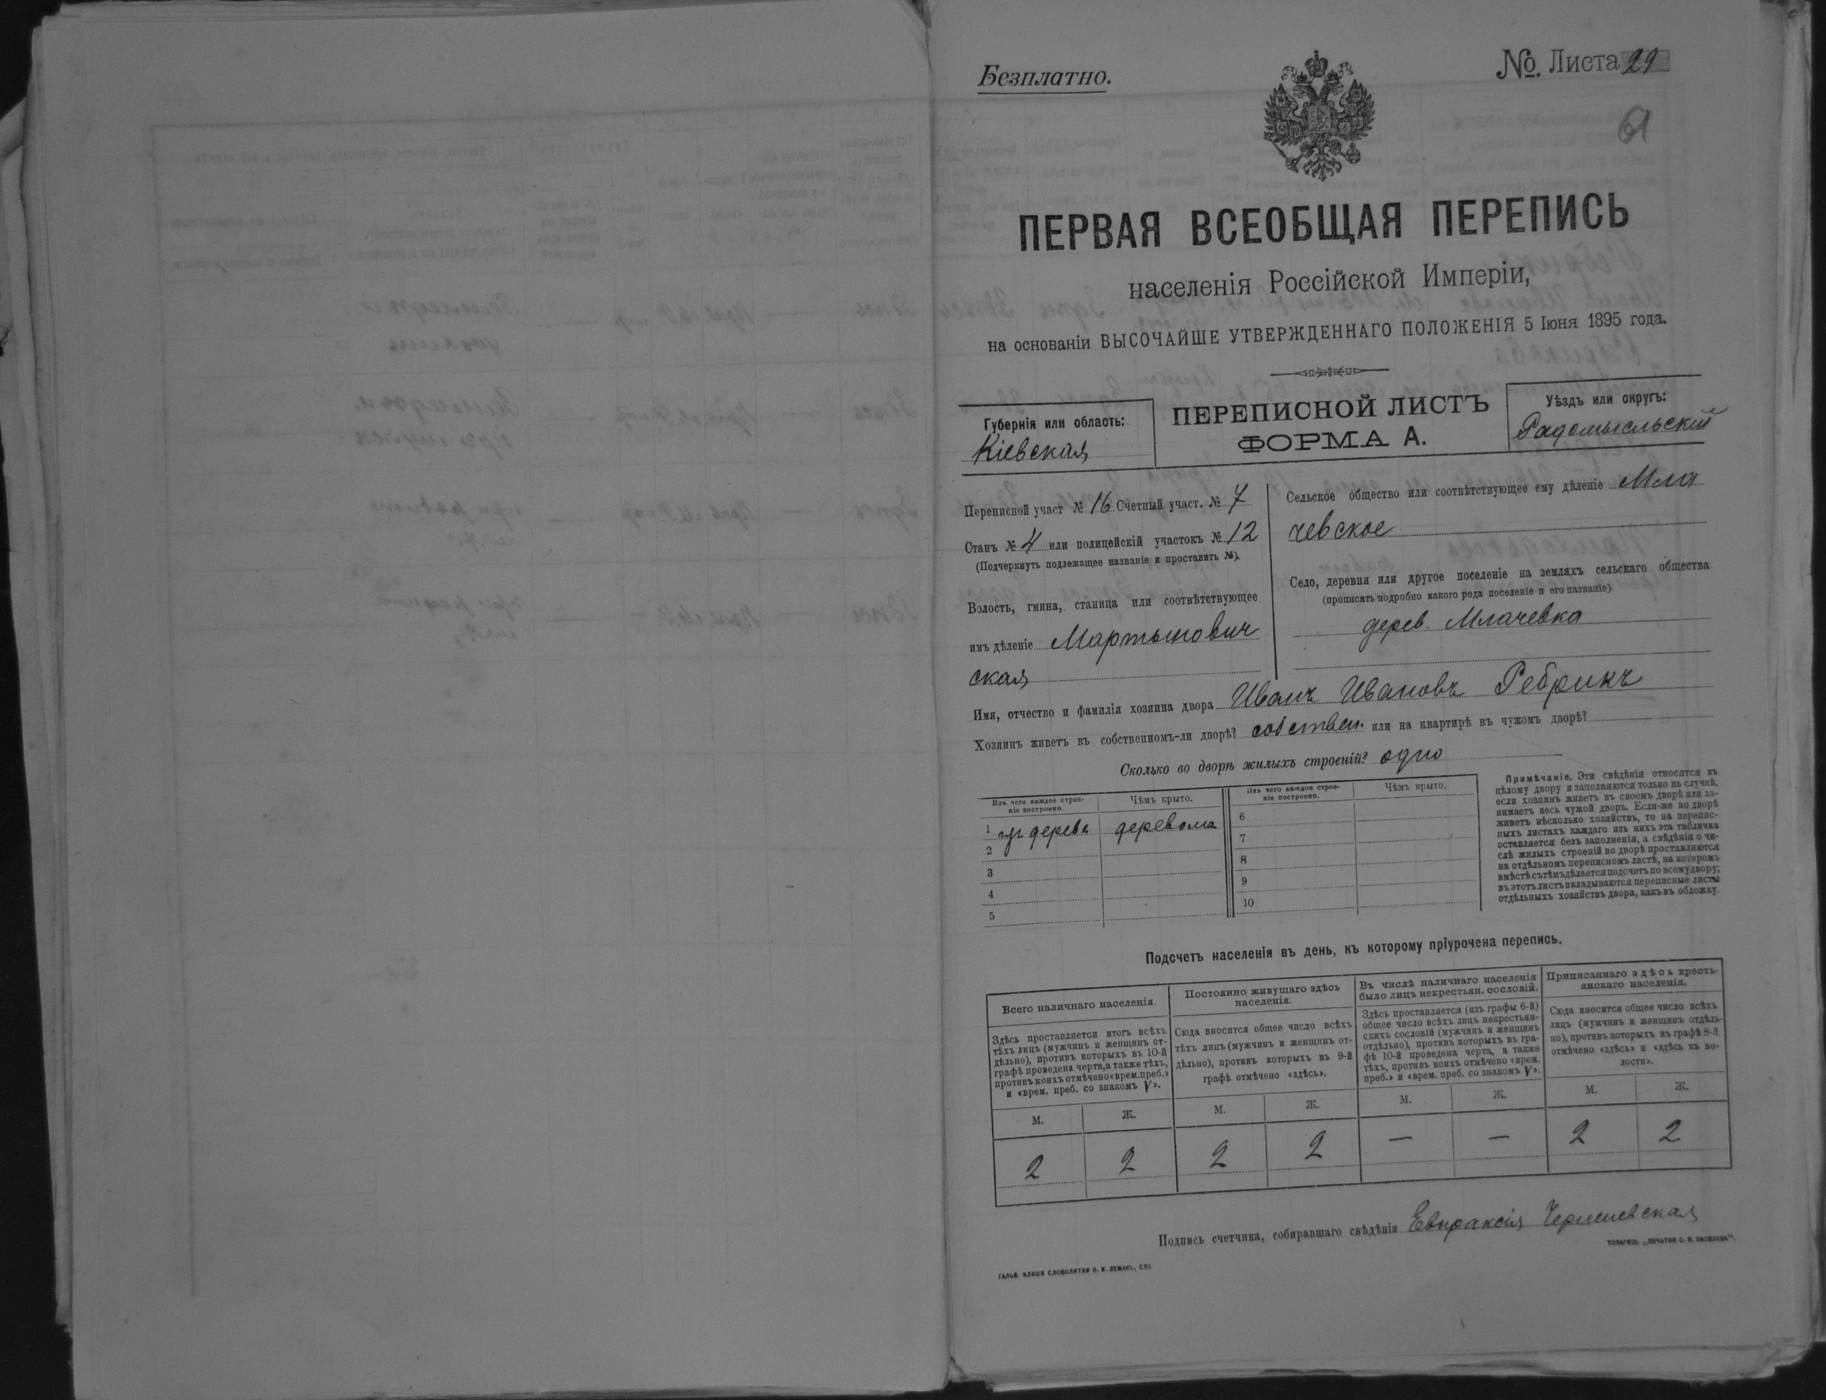 Безплатно.
№. Листа 29
61
ПЕРВАЯ ВСЕОБЩАЯ ПЕРЕПИСЬ
населенія Россійской Имперіи,
на основаніи ВЫСОЧАЙШЕ УТВЕРЖДЕННАГО ПОЛОЖЕНІЯ 5 Іюня 1895 года.
Губернія или область:
Кіевская
ПЕРЕПИСНОЙ ЛИСТЪ
ФОРМА А.
Уѣздъ или округъ:
Радомысльскій
Переписной участ № 16 Счетный участ. № 7
Станъ № 4 или полицейскій участокъ № 12
(Подчеркнуть подлежащее названіе и проставить №).
Волость, гмина, станица или соотвѣтствующее
имъ дѣленіе Мартынович
ская
Сельское общество или соотвѣтствующее ему дѣленіе Мла
чевское
Село, деревня или другое поселеніе на земляхъ сельскаго общества
(прописать подробно какого рода поселеніе и его названіе).
дерев. Млачевка
Имя, отчество и фамилія хозяина двора Иванъ Ивановъ Ребрикъ
Хозяинъ живетъ въ собственномъ-ли дворѣ? собствен. или на квартирѣ въ чужомъ дворѣ?
Сколько во дворѣ жилыхъ строеній? одно
Изъ чего каждое строе-
ніе построено.
Чѣмъ крыто.
Изъ чего каждое строе-
ніе построено.
Чѣмъ крыто.
1 изъ дерева деревома
2
3
4
5
6
7
8
9
10
Примѣчаніе. Эти свѣдѣнія относятся къ
цѣлому двору и заполняются только въ случаѣ,
если хозяинъ живетъ въ своемъ дворѣ или за-
нимаетъ весь чужой дворъ. Если-же во дворѣ
живетъ нѣсколько хозяйствъ, то на перепис-
ныхъ листахъ каждаго изъ нихъ эта табличка
оставляется безъ заполненія, а свѣдѣнія о чи-
слѣ жилыхъ строеній во дворѣ проставляются
на отдѣльномъ переписномъ листѣ, на которомъ
вмѣстѣ съ тѣмъ дѣлается подсчетъ по всему двору;
въ этотъ листъ вкладываются переписные листы
отдѣльныхъ хозяйствъ двора, какъ въ обложку.
Подсчетъ населенія въ день, къ которому пріурочена перепись.
Всего наличнаго населенія.
Здѣсь проставляется итогъ всѣхъ
тѣхъ лицъ (мужчинъ и женщинъ от-
дѣльно), противъ которыхъ въ 10-й
графѣ проведена черта, а также тѣхъ,
противъ коихъ отмѣчено «врем. преб.»
и «врем. преб. со знакомъ V».
Постоянно живущаго здѣсь
населенія.
Сюда вносится общее число всѣхъ
тѣхъ лицъ (мужчинъ и женщинъ от-
дѣльно), противъ которыхъ въ 9-й
графѣ отмѣчено «здѣсь».
Въ числѣ наличнаго населенія
было лицъ некрестьян. сословій.
Здѣсь проставляется (изъ графы 6-й)
общее число всѣхъ лицъ некрестьян-
скихъ сословій (мужчинъ и женщинъ
отдѣльно), противъ которыхъ въ гра-
фѣ 10-й проведена черта, а также
тѣхъ, противъ коихъ отмѣчено «врем.
преб.» и «врем. преб. со знакомъ V».
Приписаннаго здѣсь кресть-
янскаго населенія.
Сюда вносится общее число всѣхъ
лицъ (мужчинъ и женщинъ отдѣль-
но), противъ которыхъ въ графѣ 8-й
отмѣчено «здѣсь» и «здѣсь въ во-
лости».
М. Ж. М. Ж. М. Ж. М. Ж.
2 2 2 2 — — 2 2
Подпись счетчика, собиравшаго свѣдѣнія Евпраксія
ГАЛЬВ. КЛИШЕ СЛОВОЛИТНИ О. И. ЛЕМАНЪ, СПБ.
ТОВАРИЩ. „ПЕЧАТНЯ С. П. ЯКОВЛЕВА".